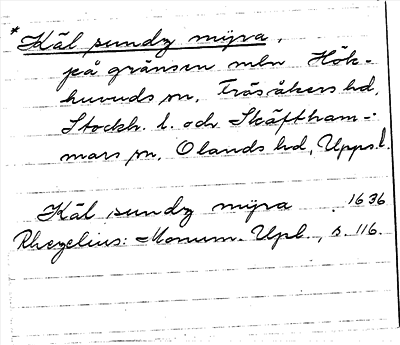 *Käl sundz myra,
på gränsen mln Hök-
huvuds sn, Frösåkers hd,
Stockh. l. och Skäftham-
mars sn, Olands hd, Upps. l.
Käl sundz myra 1636
Rhezelius: Monum. Upl., s. 116.